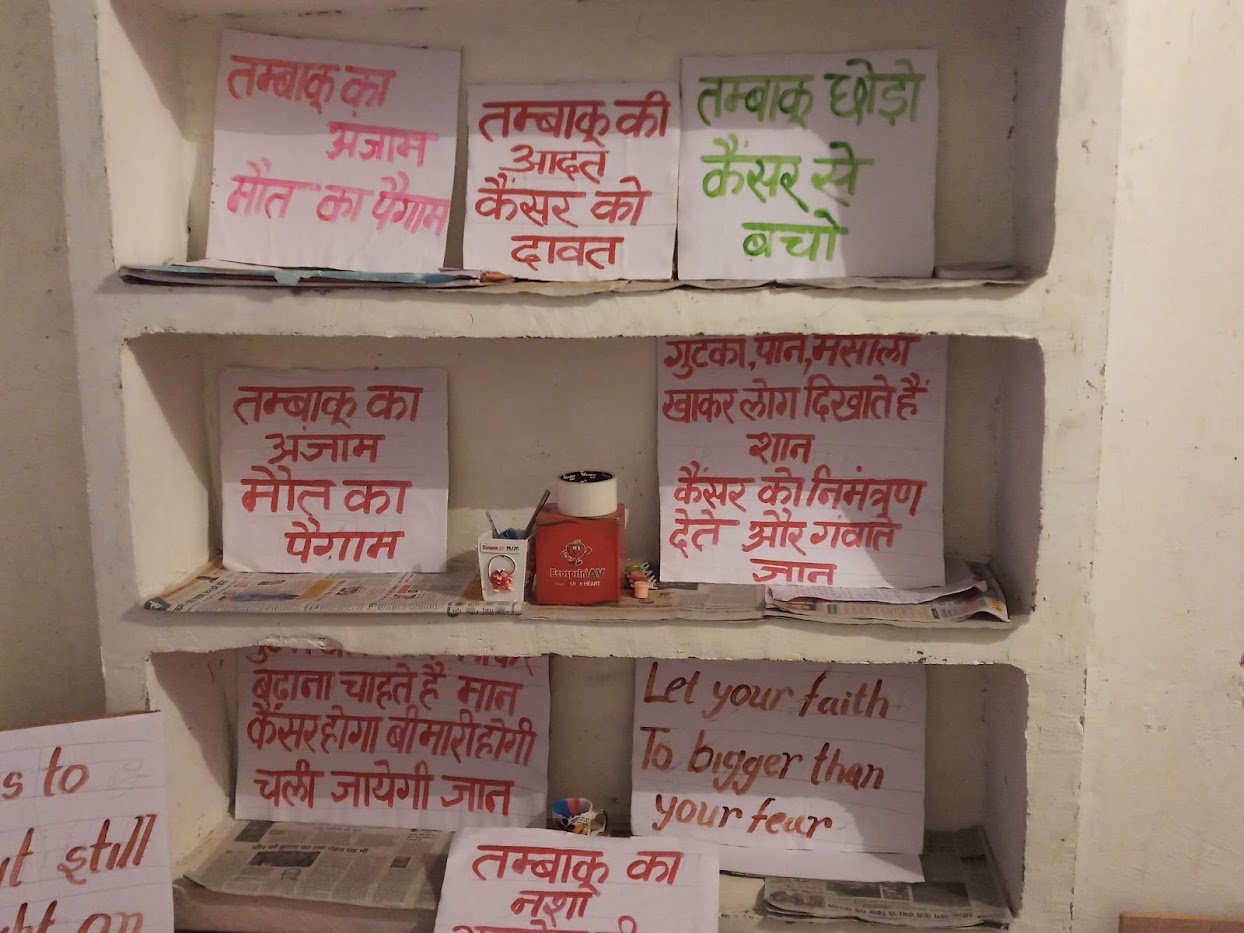 तम्बाकू का
अंजाम
मौत का पैगाम
तम्बाकू की
आदत
कैंसर को
दावत
तम्बाकू छोड़ो
कैंसर से
बचो
तम्बाकू का
अंजाम
मौत का
पैगाम
गुटका,पान,मसाला
खाकर लोग दिखाते हैं
शान
कैंसर को निमंत्रण
देते और गवाते
जान
EcosprinAV
HEART
बढ़ाना चाहते है मान
कैंसर होगा बीमारी होगी
चली जायेगी जान
Let your faith
To bigger than
your fear
s to
still
on
तम्बाकू का
नशा